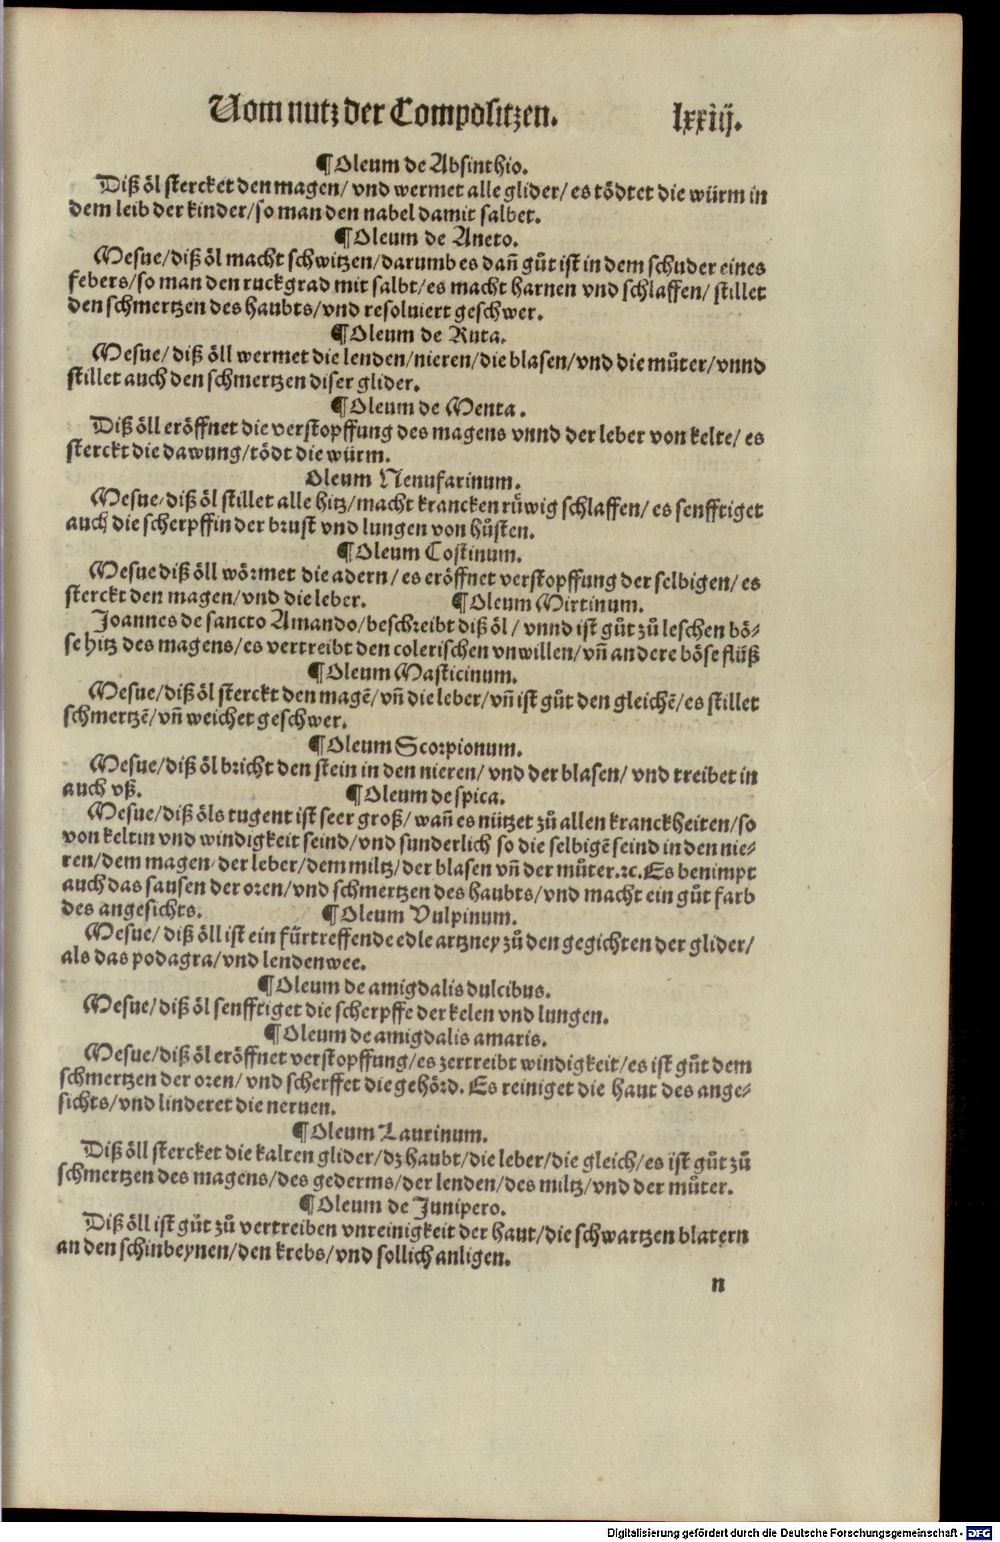 Vom nutz der Compositzen. lxxiij.
¶Oleum de Absinthio.
Diß öl stercket den magen/ vnd wermet alle glider/ es tödtet die würm in
dem leib der kinder/so man den nabel damit salbet.
¶Oleum de Aneto.
Mesue/diß öl macht schwitzen/darumb es dañ gůt ist in dem schuder eines
febers/so man den ruckgrad mit salbt/es macht harnen vnd schlaffen/ stillet
den schmertzen des haubts/vnd resoluiert geschwer.
¶Oleum de Ruta.
Mesue/ diß öll wermet die lenden/nieren/die blasen/vnd die můter/vnnd
stillet auch den schmertzen diser glider.
¶Oleum de Menta.
Diß öll eröffnet die verstopffung des magens vnnd der leber von kelte/ es
sterckt die dawung/tödt die würm.
Oleum Nenufarinum.
Mesue/diß öl stillet alle hitz/macht krancken rüwig schlaffen/ es senfftiget
auch die scherpff in der brust vnd lungen von hůsten.
¶Oleum Costinum.
Mesue diß öll wörmet die adern/ es eröffnet verstopffung der selbigen/ es
sterckt den magen/vnd die leber. ¶Oleum Mirtinum.
Joannes de sancto Amando/beschreibt diß öl/ vnnd ist gůt zů leschen bö⸗
se hitz des magens/es vertreibt den colerischen vnwillen/vñ andere böse flüß
¶Oleum Masticinum.
Mesue/diß öl sterckt den magẽ/vñ die leber/vñ ist gůt den gleichẽ/es stillet
schmertzẽ/vñ weichet geschwer.
¶Oleum Scorpionum.
Mesue/diß öl bricht den stein in den nieren/ vnd der blasen/ vnd treibet in
auch vß. ¶Oleum de spica.
Mesue/diß öls tugent ist seer groß/ wañ es nützet zů allen kranckheiten/so
von keltin vnd windigkeit seind/vnd sunderlich so die selbigẽ seind in den nie⸗
ren/dem magen/der leber/dem miltz/der blasen vñ der můter.ꝛc. Es benimpt
auch das sausen der oren/vnd schmertzen des haubts/vnd macht ein gůt farb
des angesichts. ¶Oleum Vulpinum.
Mesue/ diß öll ist ein fürtreffende edle artzney zů den gegichten der glider/
als das podagra/vnd lendenwee.
¶Oleum de amigdalis dulcibus.
Mesue/diß öl senfftiget die scherpffe der kelen vnd lungen.
¶Oleum de amigdalis amaris.
Mesue/diß öl eröffnet verstopffung/es zertreibt windigkeit/es ist gůt dem
schmertzen der oren/ vnd scherffet die gehörd. Es reiniget die haut des ange⸗
sichts/vnd linderet die neruen.
¶Oleum Laurinum.
Diß öll stercket die kalten glider/dz haubt/die leber/die gleich/es ist gůt zů
schmertzen des magens/des gederms/der lenden/des miltz/vnd der můter.
¶Oleum de Junipero.
Diß öll ist gůt zů vertreiben vnreinigkeit der haut/die schwartzen blatern
an den schinbeynen/den krebs/vnd sollich anligen.
n
Digitalisierung gefördert durch die Deutsche Forschungsgemeinschaft - DFG